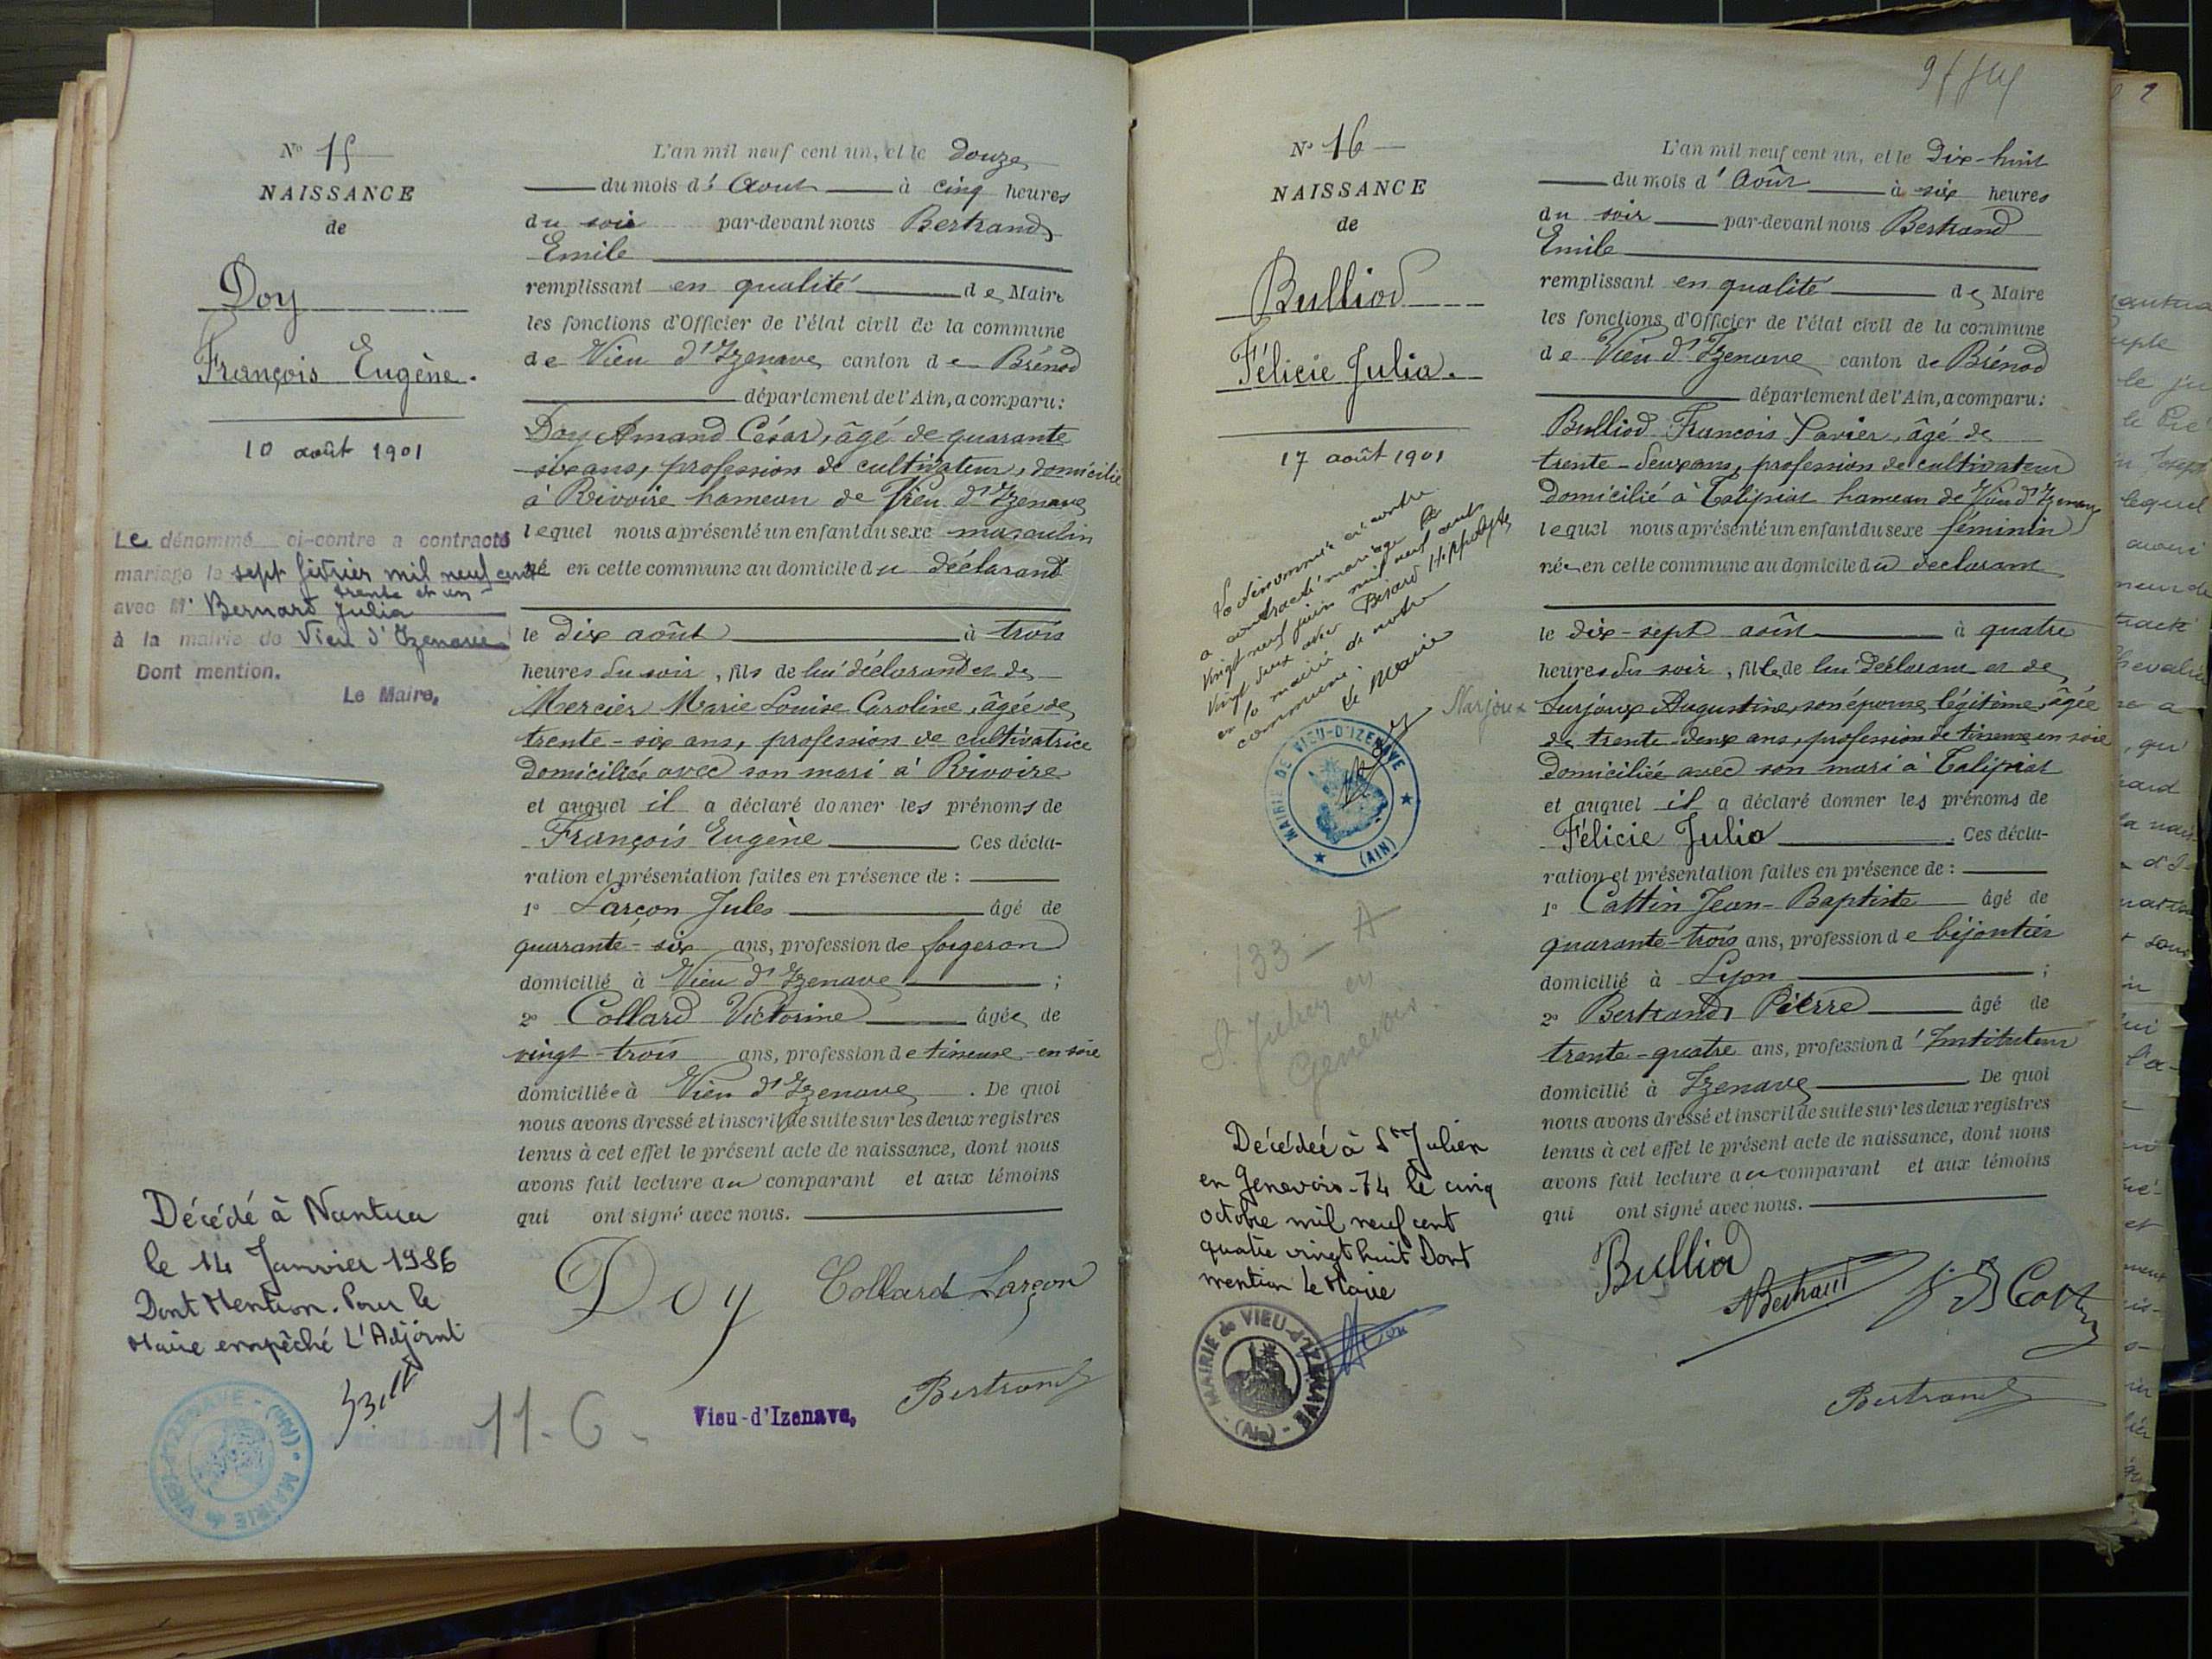 N° 15
NAISSANCE
de
Doy
François Eugène.
10 août 1901
Le dénommé ci-contre a contracté
mariage le sept février mil neuf cent
trente et un
avec M. Bernard Julia
à la mairie de Vieu d'Izenave
Dont mention.
Le Maire,
Décédé à Nantua
le 14 Janvier 1986
Dont Mention. Pour le
Maire empêché L'Adjoint
MAIRIE de VIEU-D'IZENAVE - (AIN)
L'an mil neuf cent un, et le douze
du mois d' Aout à cinq heures
du soir par-devant nous Bertrand
Emile
remplissant en qualité de Maire
les fonctions d'Officier de l'état civil de la commune
de Vieu d'Izenave canton de Brénod
département de l'Ain, a comparu:
Doy Amand César, âgé de quarante
six ans, profession de cultivateur, domicilié
à Rivoire hameau de Vieu d'Izenave
lequel nous a présenté un enfant du sexe masculin
né en cette commune au domicile du déclarant
le dix août à trois
heures du soir, fils de lui déclarant et de
Mercier Marie Louise Caroline, âgée de
trente-six ans, profession de cultivatrice
domiciliée avec son mari à Rivoire
et auquel il a déclaré donner les prénoms de
François Eugène Ces décla-
ration et présentation faites en présence de :
1° Larçon Jules âgé de
quarante-six ans, profession de forgeron
domicilié à Vieu d'Izenave ;
2° Collard Victorine âgée de
vingt-trois ans, profession de tisseuse en soie
domiciliée à Vieu d'Izenave . De quoi
nous avons dressé et inscrit de suite sur les deux registres
tenus à cet effet le présent acte de naissance, dont nous
avons fait lecture au comparant et aux témoins
qui ont signé avec nous.
Doy Collard Larçon
Bertrand
11-6-
Vieu-d'Izenave,
N° 16
NAISSANCE
de
Bulliod
Félicie Julia.
17 août 1901
La dénommée ci-contre
a contracté mariage le
vingt neuf juin mil neuf cent
vingt deux avec Berard Hippolyte
en la mairie de notre
commune.
Le Maire
MAIRIE DE VIEU-D'IZENAVE (AIN)
133 - A
St Julien en
Genevois.
Décédée à St Julien
en Genevois-74 le cinq
octobre mil neuf cent
quatre vingt huit Dont
mention Le Maire
MAIRIE de VIEU-d'IZENAVE - (Ain) -
L'an mil neuf cent un, et le Dix-huit
du mois d' Août à six heures
du soir par-devant nous Bertrand
Emile
remplissant en qualité de Maire
les fonctions d'Officier de l'état civil de la commune
de Vieu d'Izenave canton de Brénod
département de l'Ain, a comparu:
Bulliod François Xavier, âgé de
trente-deux ans, profession de cultivateur
domicilié à Talipiat hameau de Vieu d'Izenave
lequel nous a présenté un enfant du sexe féminin
née en cette commune au domicile du déclarant
le dix-sept août à quatre
heures du soir, fille de lui déclarant et de
Narjoux Surjoux Augustine, son épouse légitime, âgée
de trente-deux ans, profession de tisseuse en soie
domiciliée avec son mari à Talipiat
et auquel il a déclaré donner les prénoms de
Félicie Julia . Ces décla-
ration et présentation faites en présence de :
1° Cattin Jean-Baptiste âgé de
quarante-trois ans, profession de bijoutier
domicilié à Lyon ;
2° Bertrand Pierre âgé de
trente-quatre ans, profession d'Instituteur
domicilié à Izenave De quoi
nous avons dressé et inscrit de suite sur les deux registres
tenus à cet effet le présent acte de naissance, dont nous
avons fait lecture au comparant et aux témoins
qui ont signé avec nous.
Bulliod
Bertrand
Bertrand